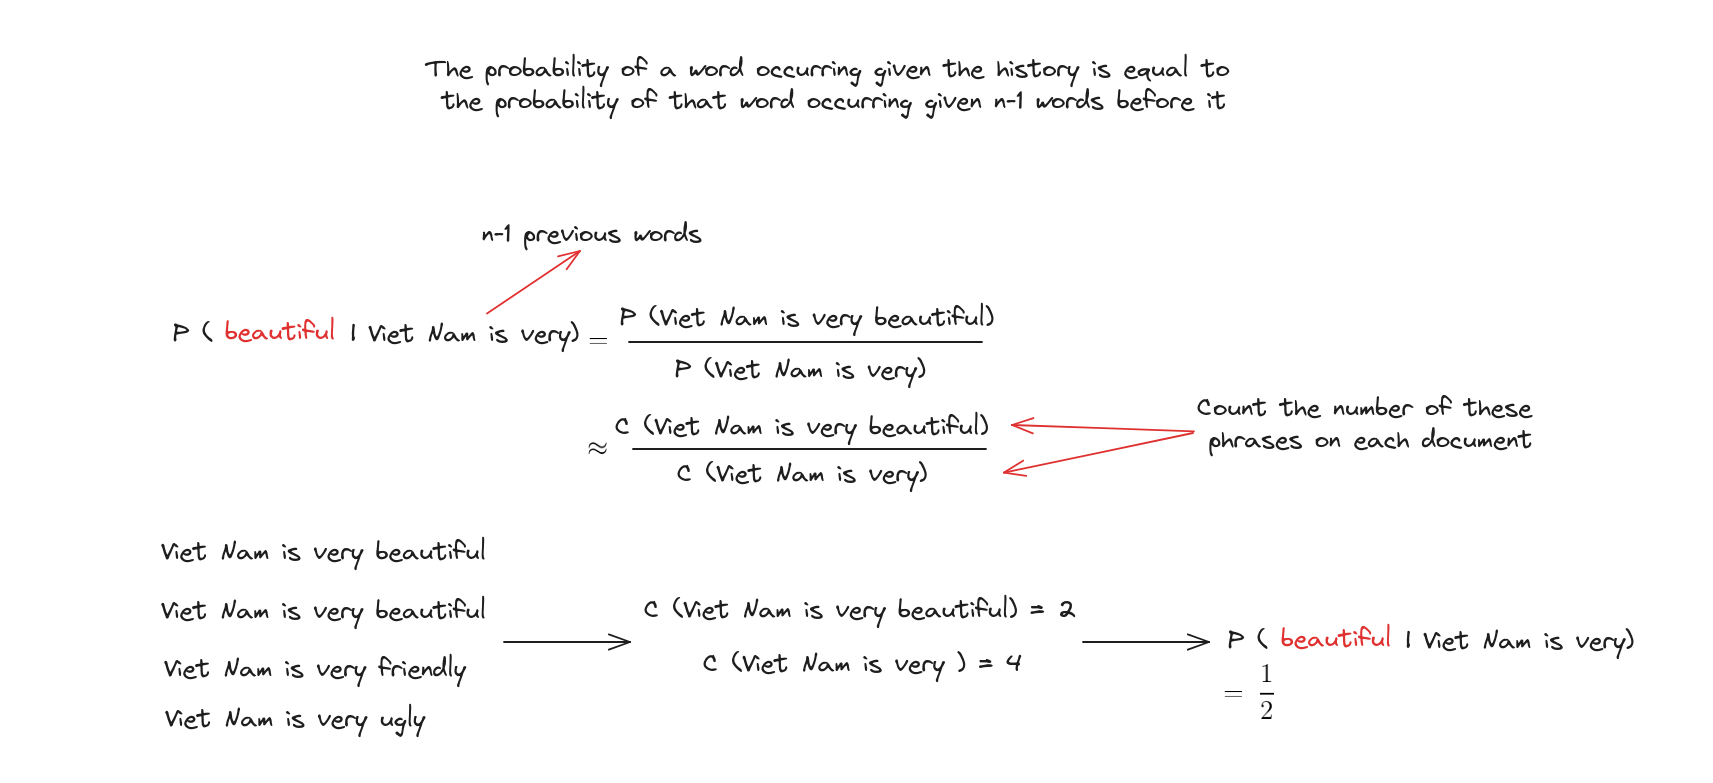 The probability of a word occurring given the history is equal to
the probability of that word occurring given n-1 words before it
n-1 previous words
P ( beautiful | Viet Nam is very) = P (Viet Nam is very beautiful)
P (Viet Nam is very)
≈ C (Viet Nam is very beautiful)
C (Viet Nam is very)
Count the number of these
phrases on each document
Viet Nam is very beautiful
Viet Nam is very beautiful
Viet Nam is very friendly
Viet Nam is very ugly
C (Viet Nam is very beautiful) = 2
C (Viet Nam is very ) = 4
P ( beautiful | Viet Nam is very)
= 1
2